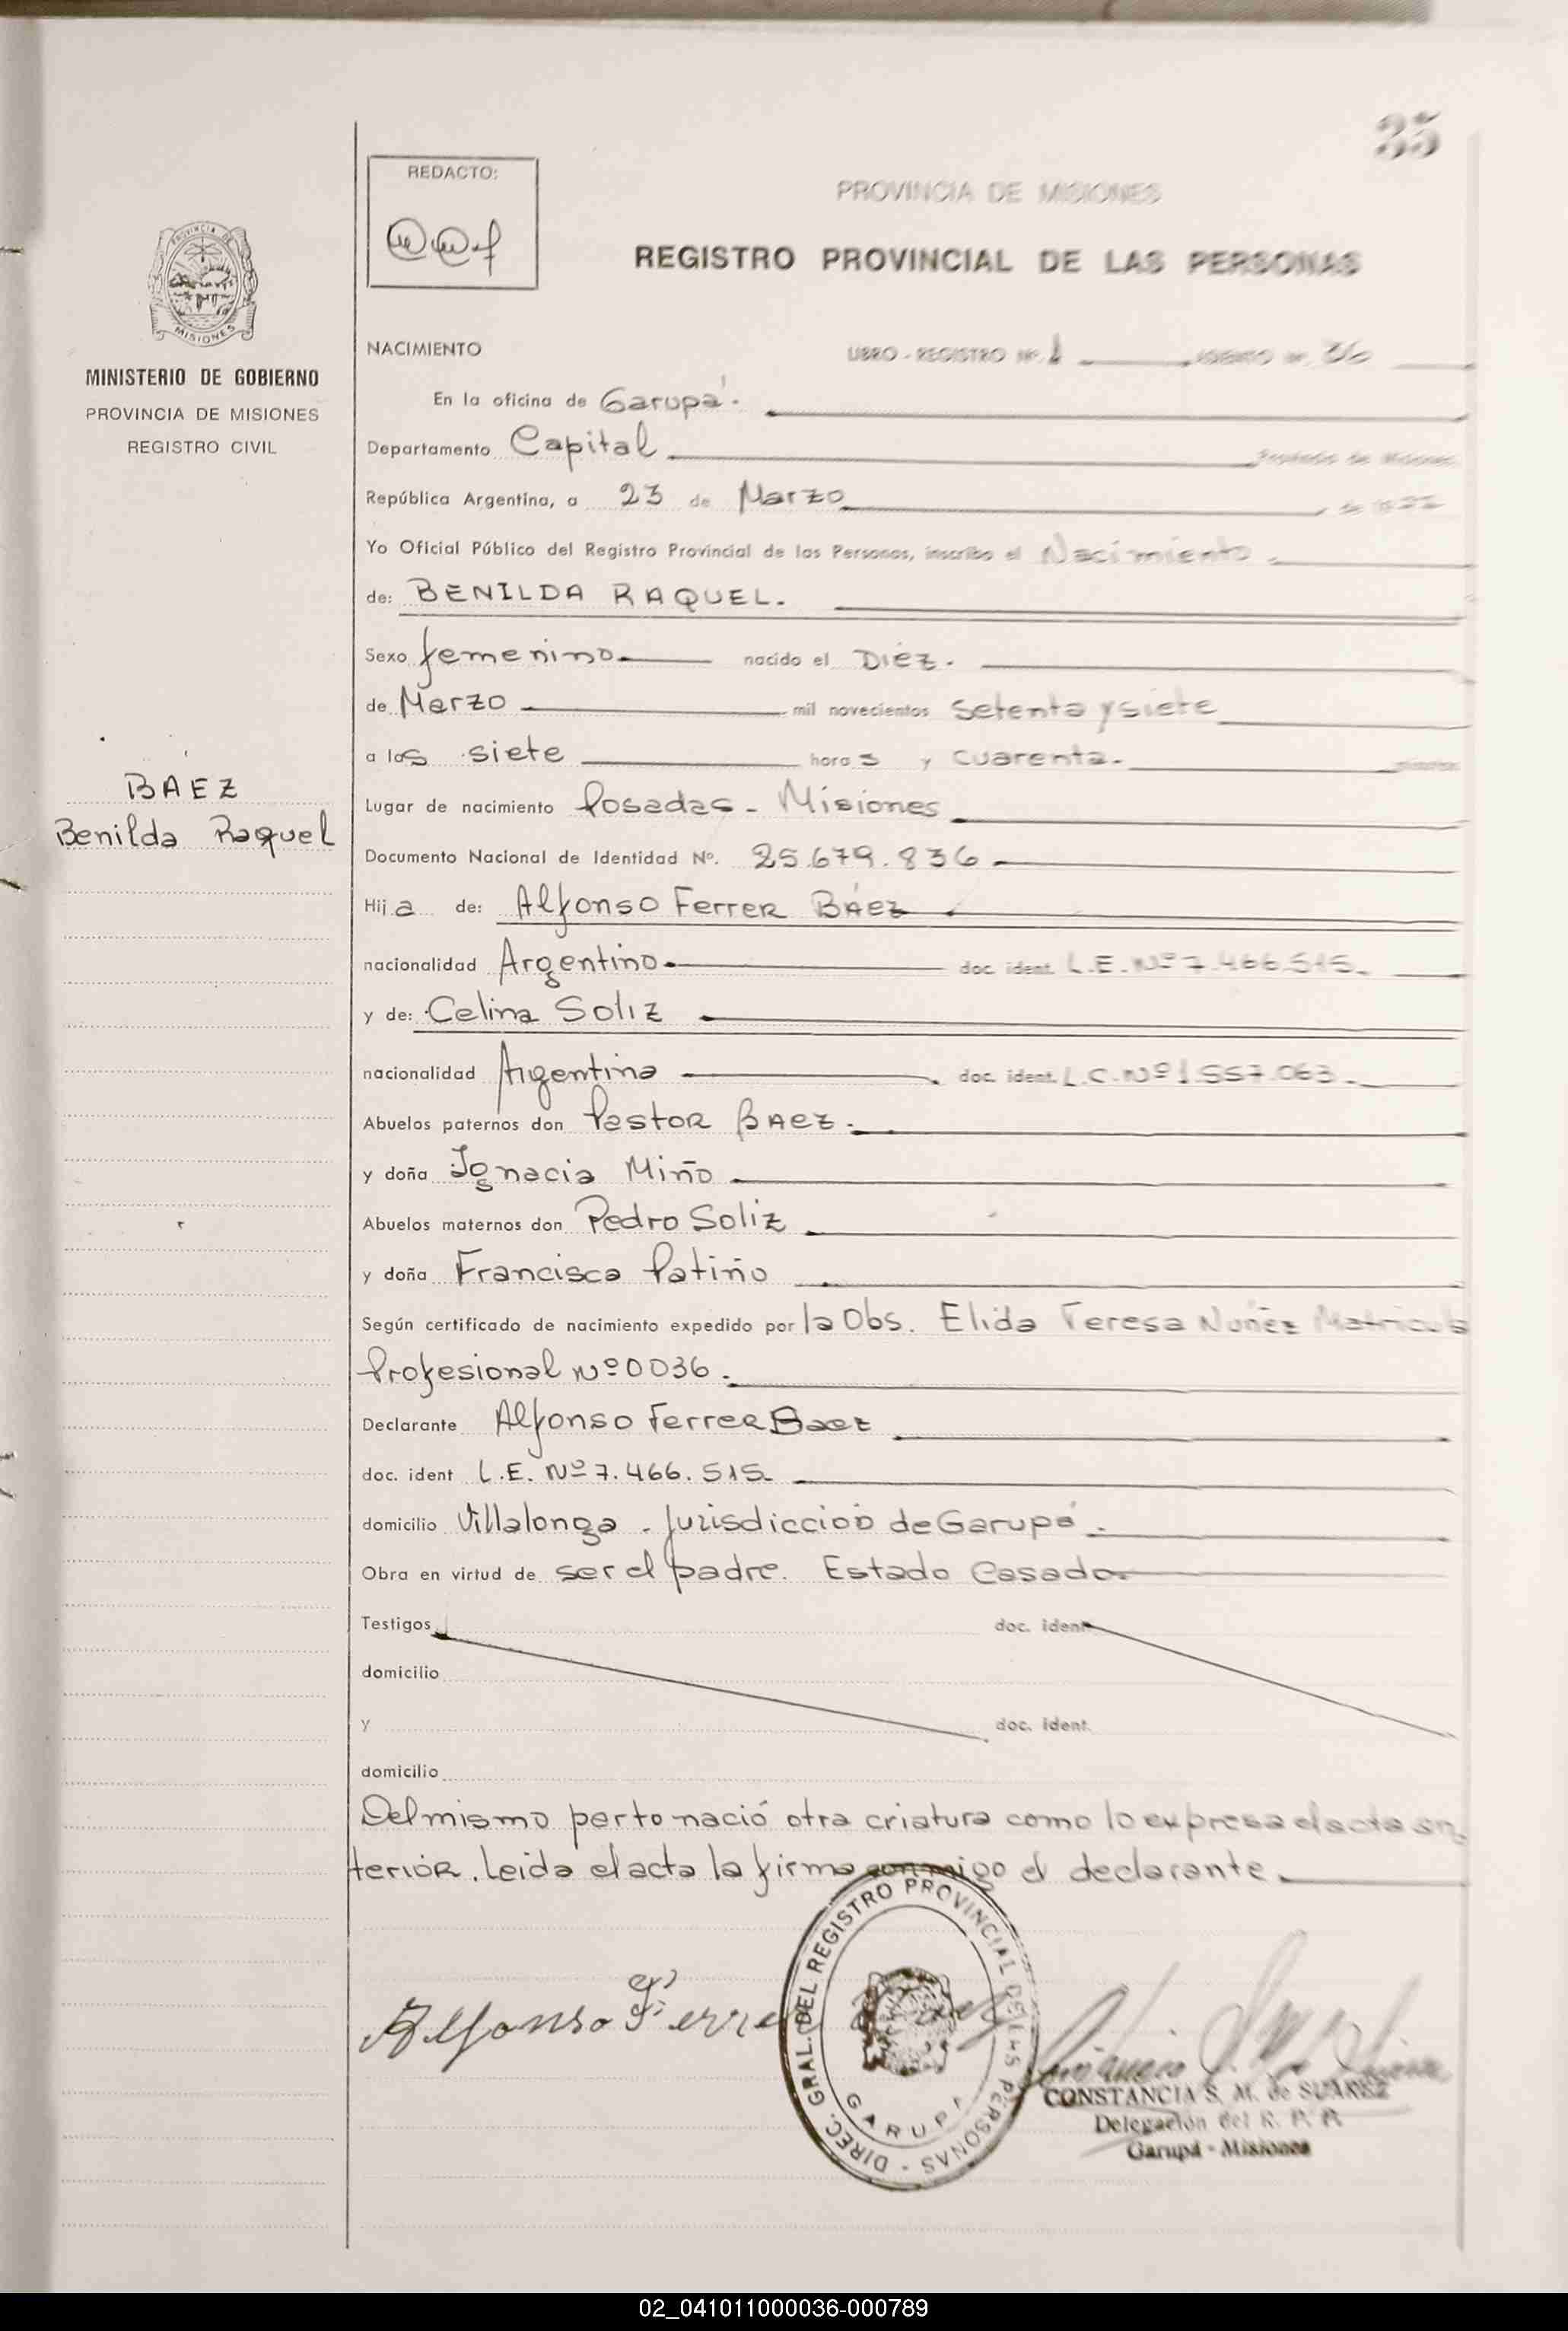 35
REDACTO:
PROVINCIA DE MISIONES
REGISTRO PROVINCIAL DE LAS PERSONAS
PROVINCIA DE
MISIONES
MINISTERIO DE GOBIERNO
PROVINCIA DE MISIONES
REGISTRO CIVIL
BAEZ
Benilda Raquel
NACIMIENTO LIBRO - REGISTRO Nº. 1 ASIENTO Nº. 36
En la oficina de Garupá.
Departamento Capital Provincia de Misiones,
República Argentina, a 23 de Marzo de 1977
Yo Oficial Público del Registro Provincial de las Personas, inscribo el Nacimiento.
de: BENILDA RAQUEL.
Sexo femenino nacido el Diéz.
de Marzo mil novecientos setenta y siete
a las siete horas y cuarenta. minutos
Lugar de nacimiento Posadas - Misiones
Documento Nacional de Identidad Nº. 25.679.836
Hija de: Alfonso Ferrer BÁez
nacionalidad Argentino doc. ident. L.E. Nº 7.466.515.
y de: Celina Soliz
nacionalidad Argentina doc. ident. L.C. Nº 1.557.063.
Abuelos paternos don Pastor BAez.
y doña Ignacia Miño
Abuelos maternos don Pedro Soliz
y doña Francisca Patiño
Según certificado de nacimiento expedido por la Obs. Elida Teresa Nuñez Matricula
Profesional Nº 0036.
Declarante Alfonso Ferrer Baez
doc. ident L.E. Nº 7.466.515.
domicilio Villalonga. Jurisdicción de Garupá.
Obra en virtud de ser el padre. Estado Casado.
Testigos doc. ident.
domicilio
y doc. ident.
domicilio
Del mismo parto nació otra criatura como lo expresa el acta an
terior. Leida el acta la firma conmigo el declarante.
Alfonso Ferrer Baez
DIREC. GRAL. DEL REGISTRO PROVINCIAL DE LAS PERSONAS -
GARUPA
CONSTANCIA S. M. de SUAREZ
Delegación del R. P. P.
Garupá - Misiones
02_041011000036-000789